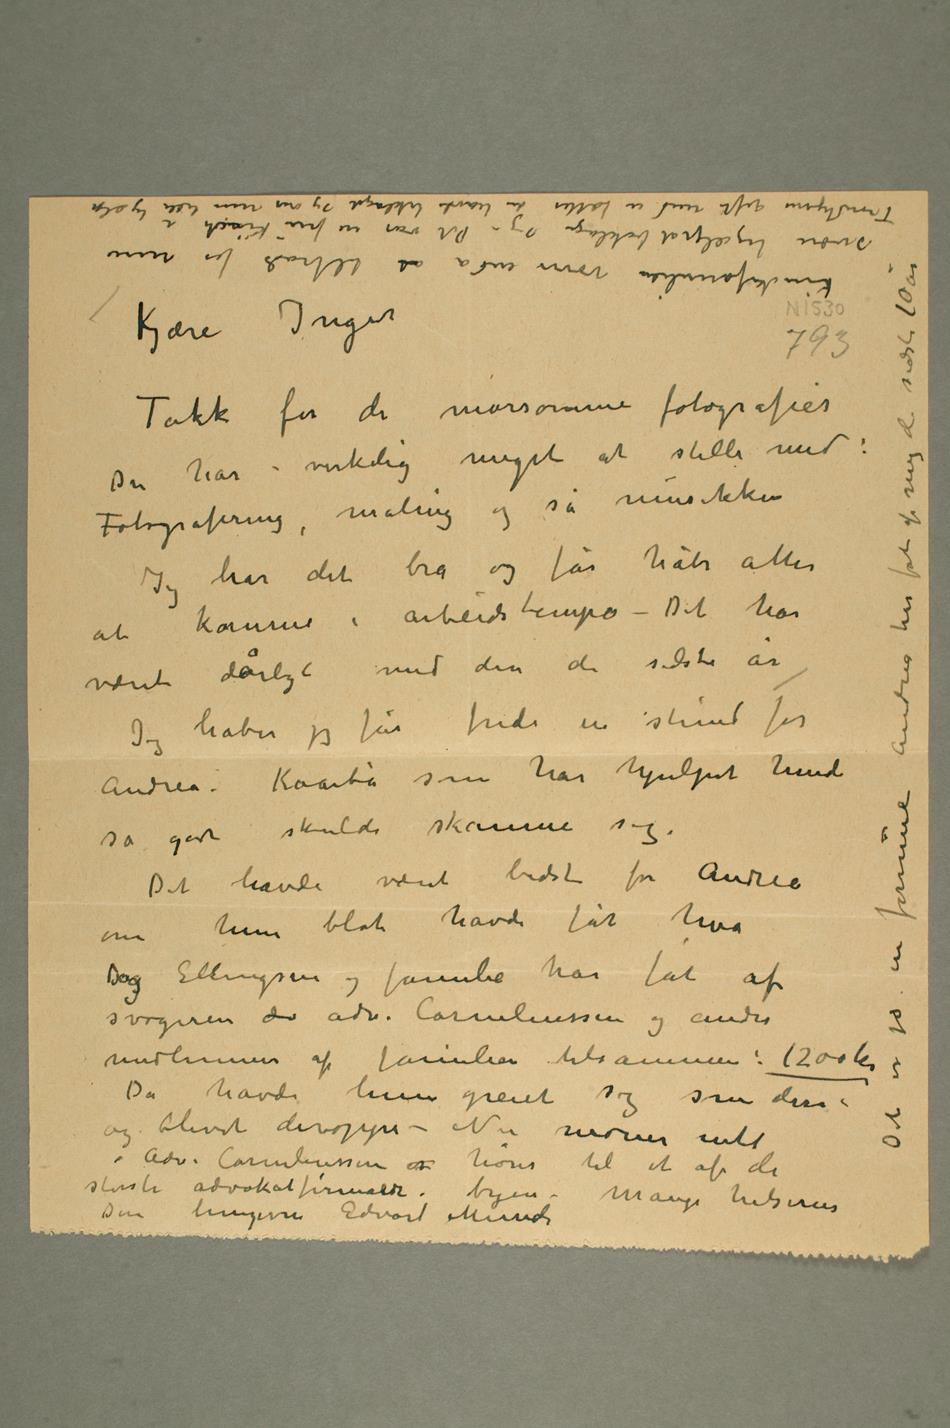 Kjære Inger
N 1530
793
Takk for de morsomme fotografier
Du har virkelig meget at stelle med:
Fotografering, maling og så musikken
Jeg har det bra og får håbe atter
at komme i arbeidstempo – Det har
været dårligt med den de sidste år
Jeg håber jeg får fred en stund for
Andrea. som har hjulpet hende
så godt skulde skamme sig.
Det havde været bedst for Andrea
om hun blot havde fåt hva
Dag Ellingsen og familie har fåt af
svogeren adv. Corneliussen og andre
medlemmer af familien tilsammen: 1200 kr
Da havde hun greiet sig som dem
og blevet deroppe – Nu
Adv. Corneliussen hører til et af de
største advokatfirmaer i byen – Mange hilsener
Din hengivne Edvard Munch
Det er jo en formue Andrea har fåt af mig de sidste 10 år